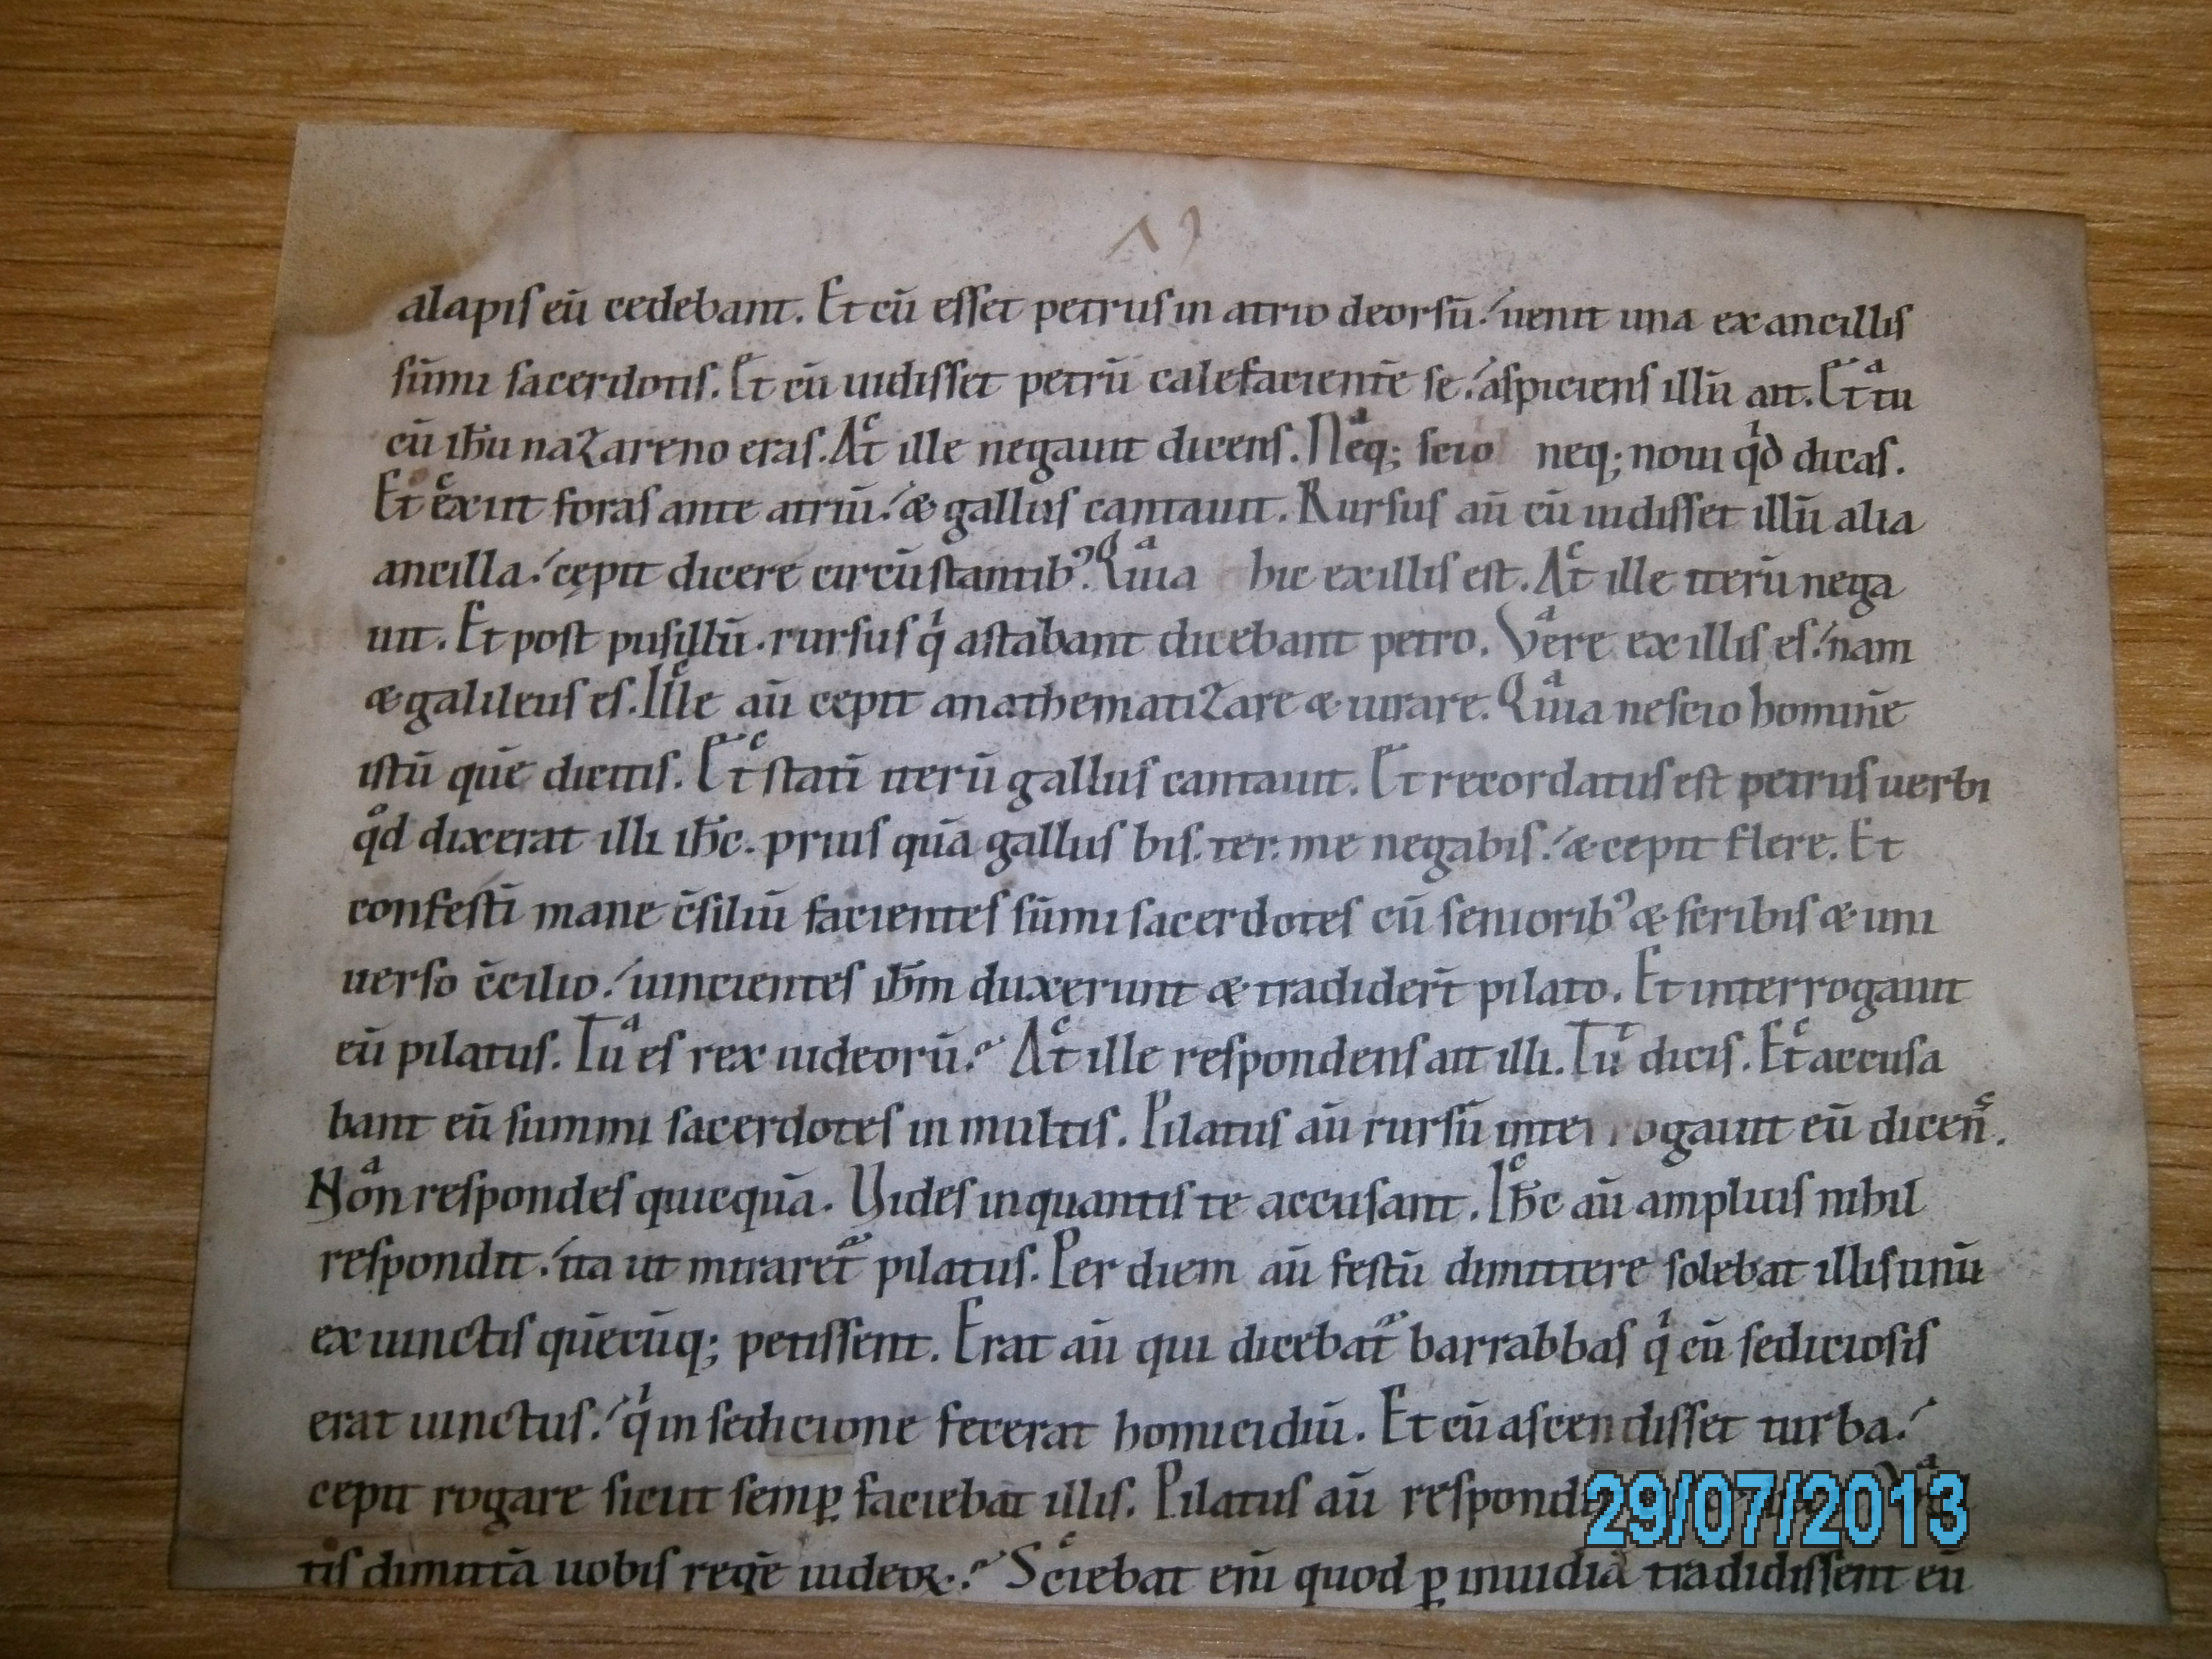 19
alapis eū cedebant. Et cū esset petrus in atrio deorsū. uenit una ex ancillis
sūmi sacerdotis. Et cū uidisset petrū calefacientē se. aspiciens illū ait. Et tu
cū ihu nazareno eras. At ille negauit dicens. Neq; scio neq; noui qd dicas.
Et exiit foras ante atriū. & gallus cantauit. Rursus aū cū uidisset illū alia
ancilla. cępit dicere circūstantib'. Quia hic ex illis est. At ille iterū nega
uit. Et post pusillū. rursus q astabant dicebant petro. Vere ex illis es. nam
& galileus es. Ille aū cepit anathematizare & iurare. Quia nescio hominē
istū quē dicitis. Et statī iterū gallus cantauit. Et recordatus est petrus uerbi
qd dixerat illi ihc. prius quā gallus bis. ter. me negabis. & cepit flere. Et
confestī mane c̄siliū facientes sūmi sacerdotes cū seniorib' & scribis & uni
uerso c̄cilio. uincientes ihm duxerunt & tradider̄t pilato. Et interrogauit
eū pilatus. Tu es rex iudeorū? At ille respondens ait illi. Tu dicis. Et accusa
bant eū summi sacerdotes in multis. Pilatus aū rursū interrogauit eū dicen̄s.
Non respondes quicquā. Uides in quantis te accusant. Ihc aū amplius nihil
respondit. ita ut miraret pilatus. Per diem aū festū dimittere solebat illis unū
ex uinctis quēcūq; petissent. Erat aū qui dicebat barrabbas q cū sediciosis
erat uinctus. q in sedicione fecerat homicidiū. Et cū ascendisset turba.
cepit rogare sicut semp faciebat illis. Pilatus aū respondi
29/07/2013
tis dimittā uobis regē iudeoꝝ? Sciebat eni quod p inuidiā tradidissent eū